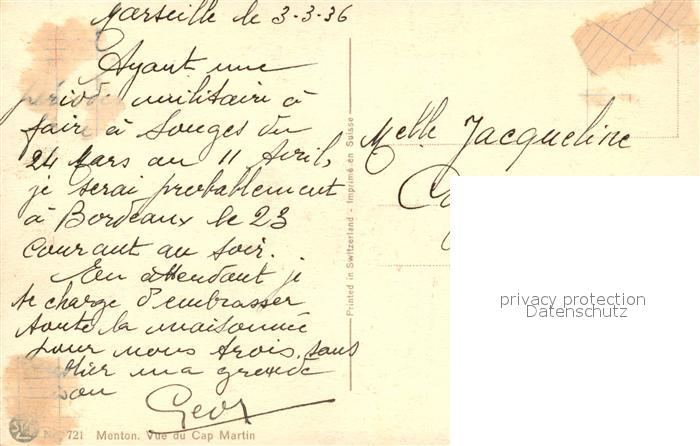 Marseille le 3-3-36
Ayant une
période militaire à
faire à Souges du
24 Mars au 11 Avril,
je serai probablement
à Bordeaux le 23
courant au soir.
En attendant je
te charge d'embrasser
toute la maisonnée
pour nous trois, sans
ma grande
Geo
721 Menton. Vue du Cap Martin
Printed in Switzerland - Imprimé en Suisse
Melle Jacqueline
privacy protection
Datenschutz